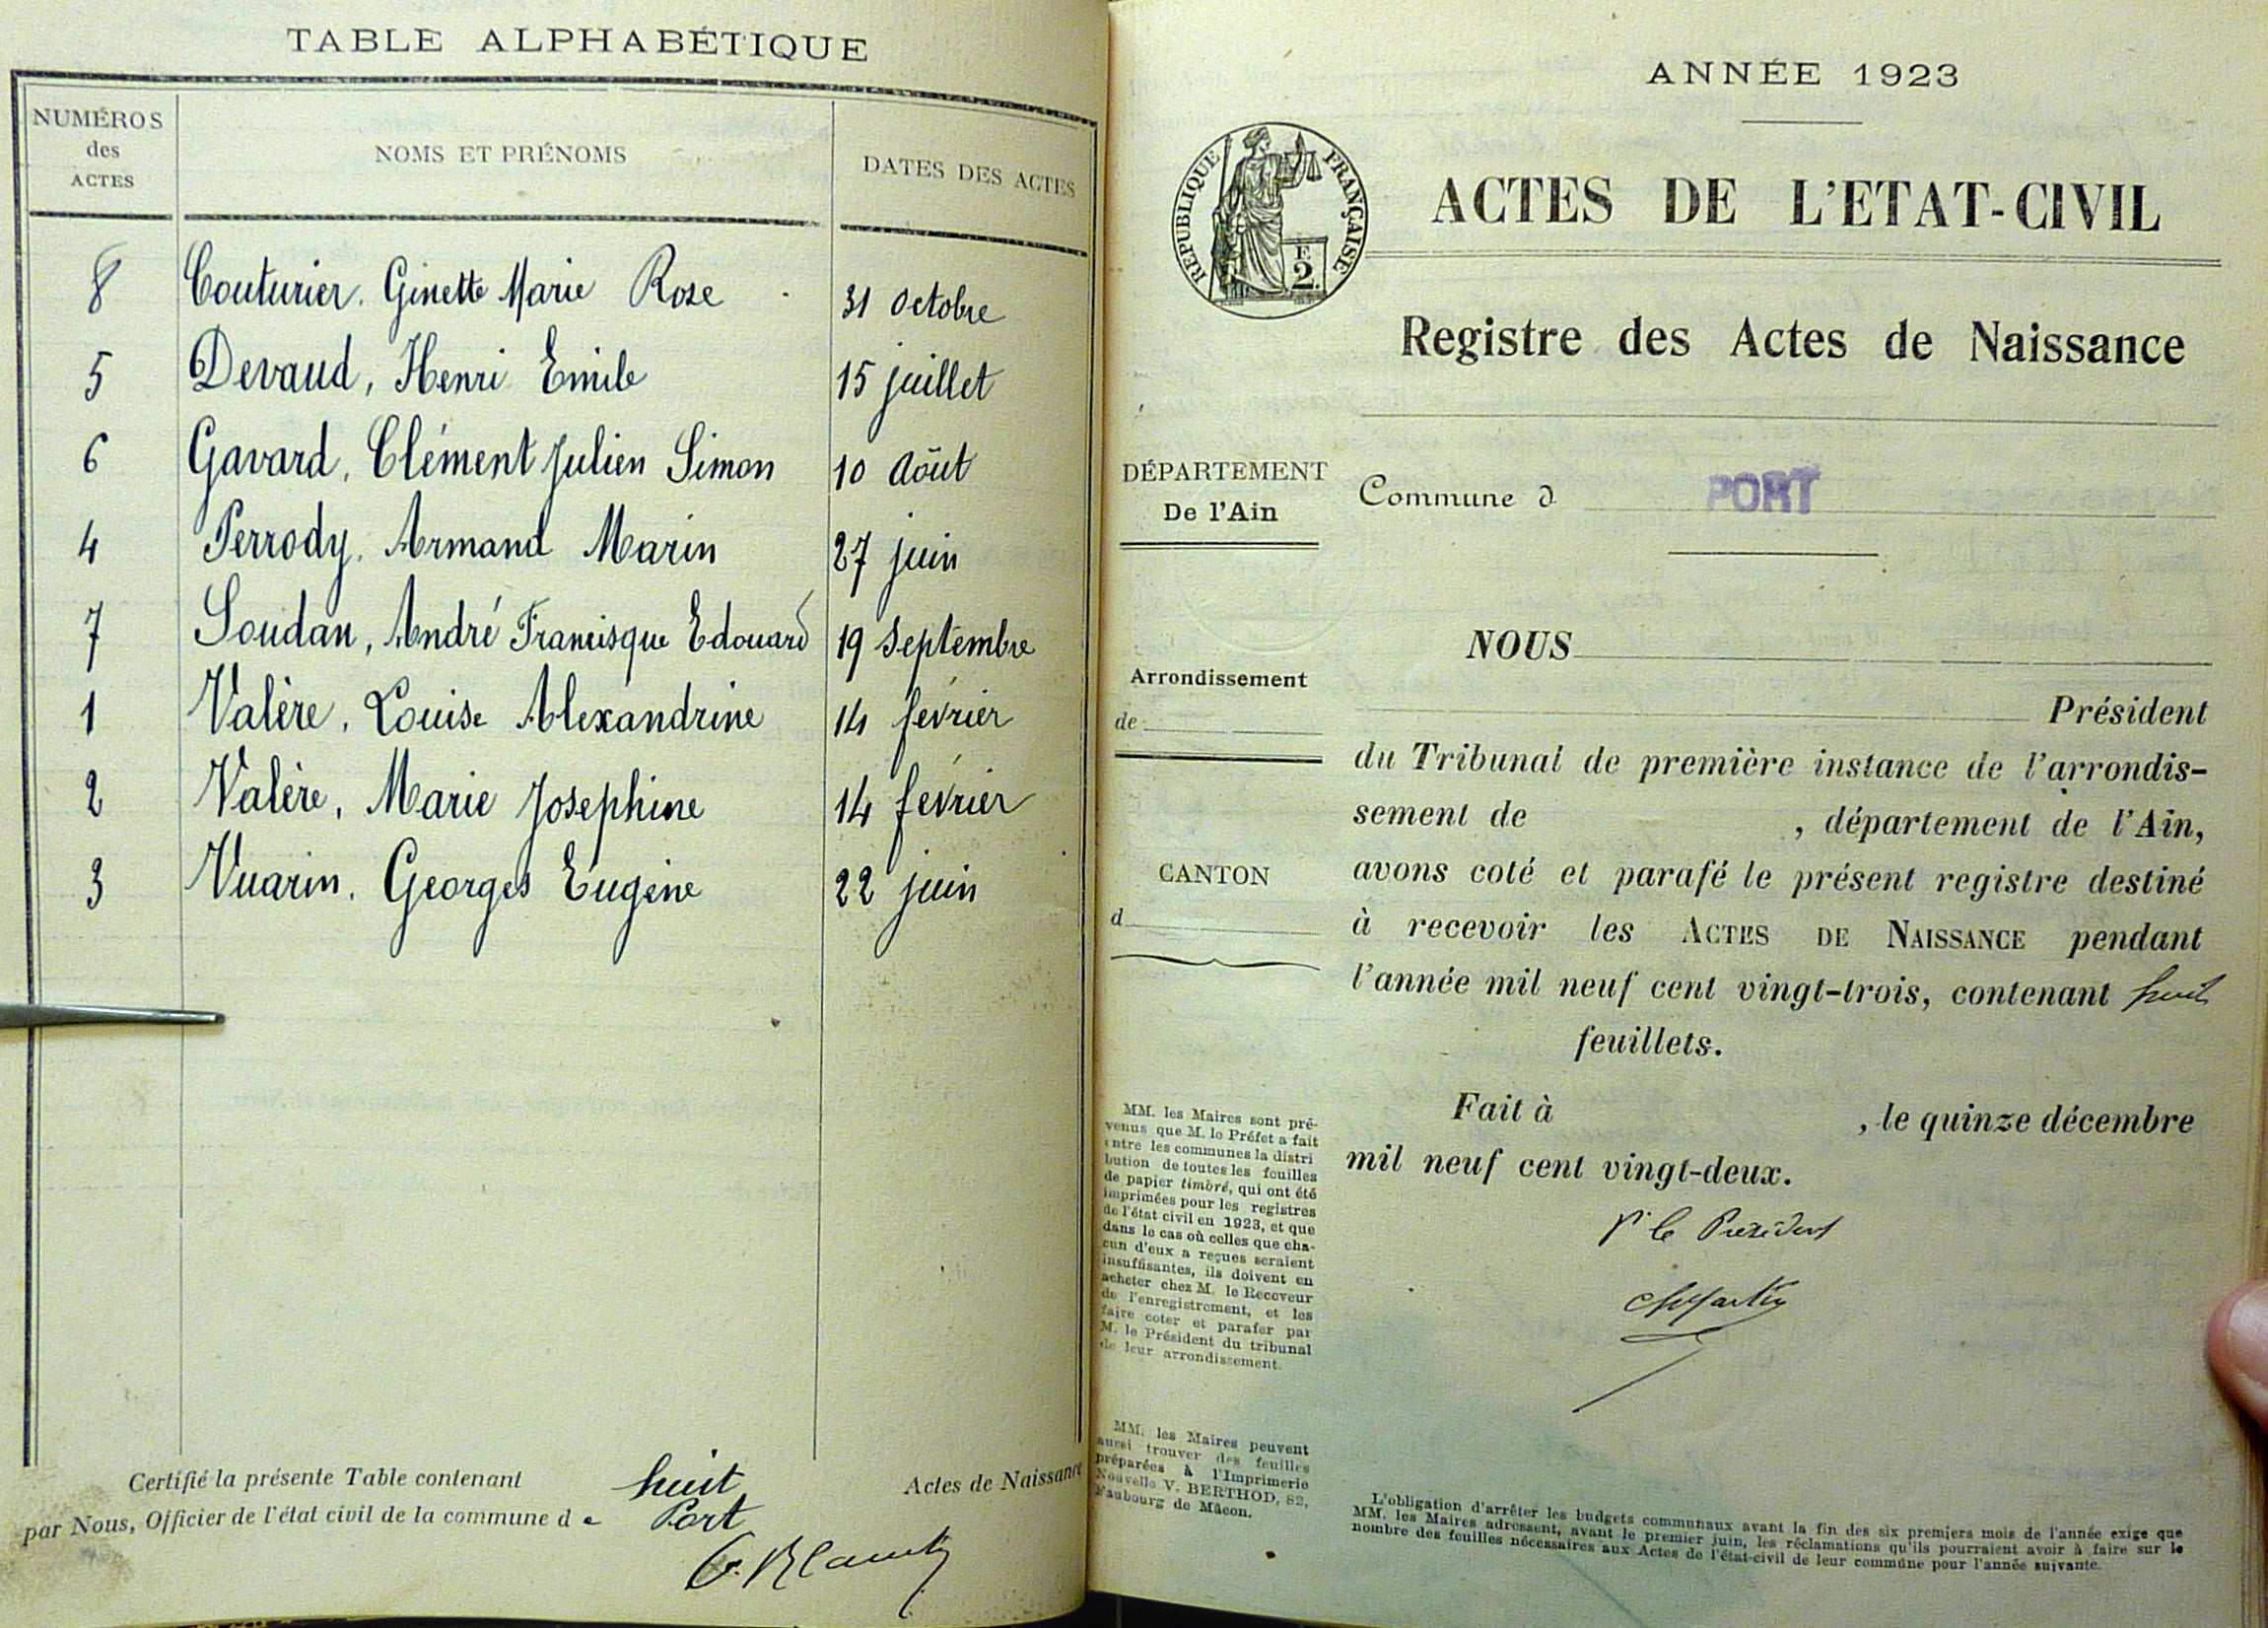 TABLE ALPHABÉTIQUE
NUMÉROS
des
ACTES
NOMS ET PRÉNOMS
DATES DES ACTES
8 Couturier. Ginette Marie Rose 31 Octobre
5 Devaud, Henri Emile 15 juillet
6 Gavard, Clément Julien Simon 10 Août
4 Perrody, Armand Marin 27 juin
7 Soudan, André Francisque Edouard 19 Septembre
1 Valère, Louise Alexandrine 14 février
2 Valère, Marie Josephine 14 février
3 Vuarin. Georges Eugène 22 juin
Certifié la présente Table contenant huit Actes de Naissance
par Nous, Officier de l'état civil de la commune de Port
ANNÉE 1923
RÉPUBLIQUE FRANÇAISE
F.
2
ACTES DE L'ETAT-CIVIL
Registre des Actes de Naissance
DÉPARTEMENT
De l'Ain
Commune d PORT
Arrondissement
de
CANTON
d
NOUS
Président
du Tribunal de première instance de l'arrondis-
sement de , département de l'Ain,
avons coté et parafé le présent registre destiné
à recevoir les ACTES DE NAISSANCE pendant
l'année mil neuf cent vingt-trois, contenant huit
feuillets.
Fait à , le quinze décembre
mil neuf cent vingt-deux.
Pr le Président
MM. les Maires sont pré-
venus que M. le Préfet a fait
entre les communes la distri
bution de toutes les feuilles
de papier timbré, qui ont été
imprimées pour les registres
de l'état civil en 1923, et que
dans le cas où celles que cha-
cun d'eux a reçues seraient
insuffisantes, ils doivent en
acheter chez M. le Receveur
de l'enregistrement, et les
faire coter et parafer par
M. le Président du tribunal
de leur arrondissement.
MM. les Maires peuvent
aussi trouver des feuilles
préparées à l'Imprimerie
Nouvelle V. BERTHOD, 82,
Faubourg de Mâcon.
L'obligation d'arrêter les budgets communaux avant la fin des six premiers mois de l'année exige que
MM. les Maires adressent, avant le premier juin, les réclamations qu'ils pourraient avoir à faire sur le
nombre des feuilles nécessaires aux Actes de l'état-civil de leur commune pour l'année suivante.